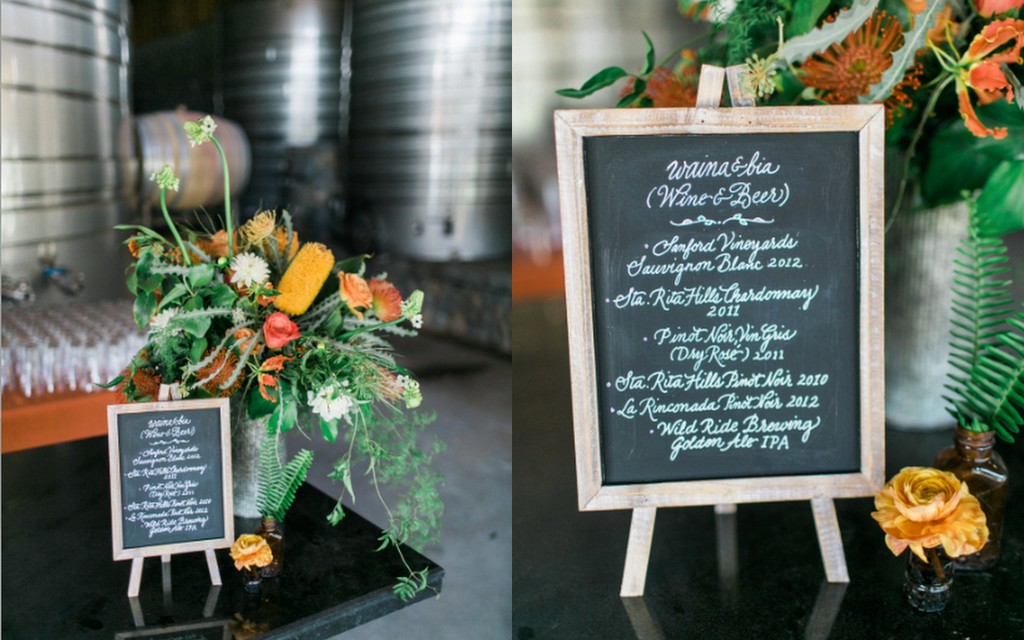 waina & bia
(Wine & Beer)
• Sanford Vineyards
Sauvignon Blanc 2012
• Sta. Rita Hills Chardonnay
2011
• Pinot Noir, Vin Gris
(Dry Rosé) 2011
• Sta. Rita Hills Pinot Noir 2010
• La Rinconada Pinot Noir 2012
• Wild Ride Brewing
Golden Ale IPA
waina & bia
(Wine & Beer)
• Sanford Vineyards
Sauvignon Blanc 2012
• Sta. Rita Hills Chardonnay
2011
• Pinot Noir, Vin Gris
(Dry Rosé) 2011
• Sta. Rita Hills Pinot Noir 2010
• La Rinconada Pinot Noir 2012
• Wild Ride Brewing
Golden Ale IPA